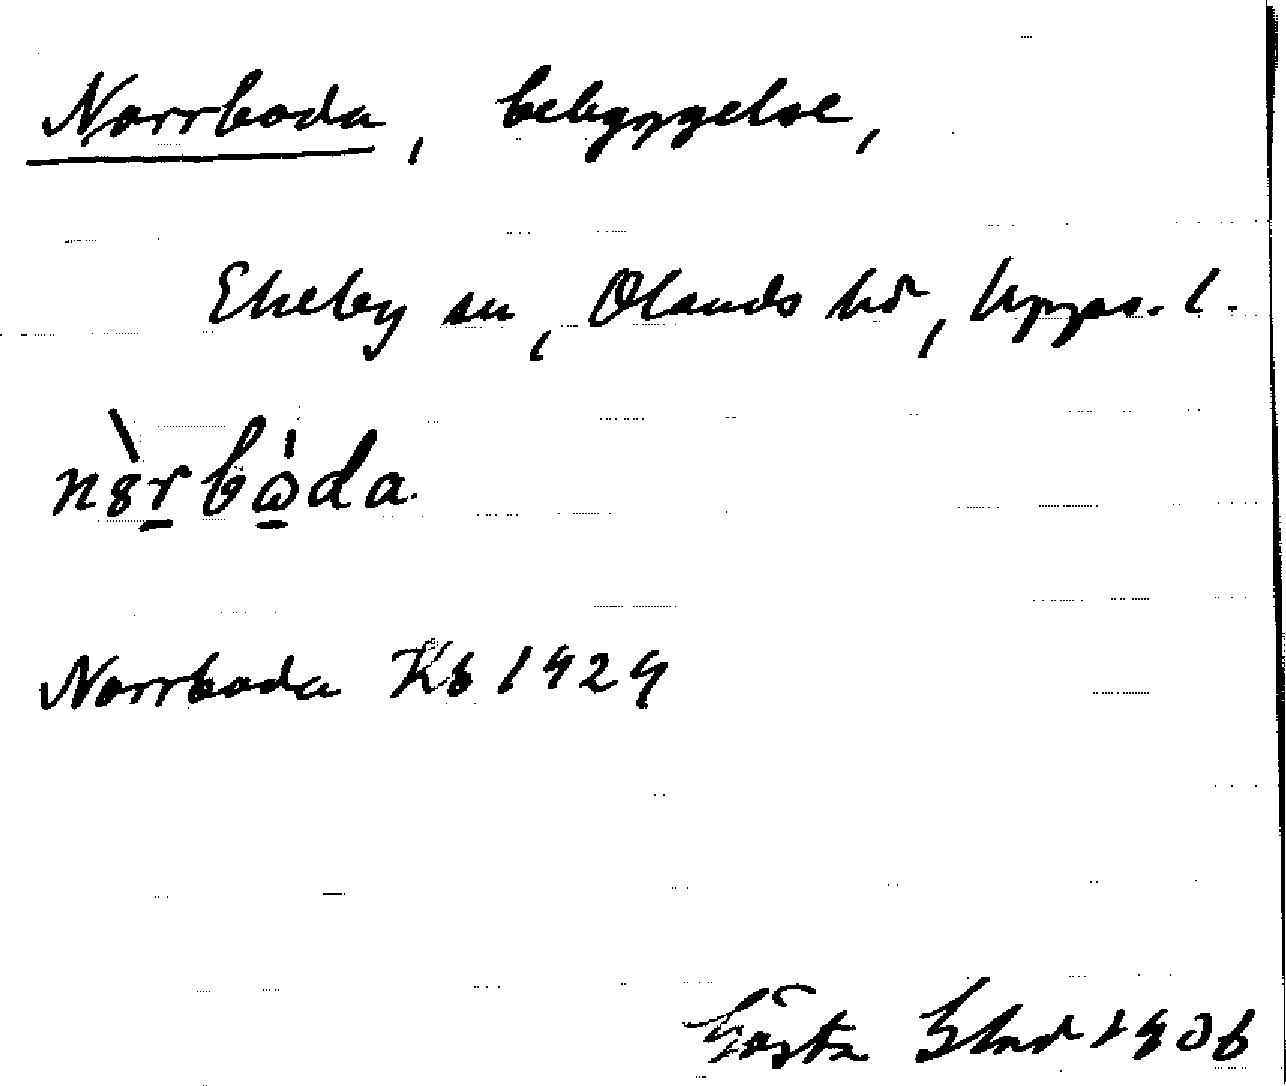 Norrboda, bebyggelse,
Ekeby sn, Olands hd, Upps. l.
nòrbòda.
Norrboda Kb 1929
Gösta